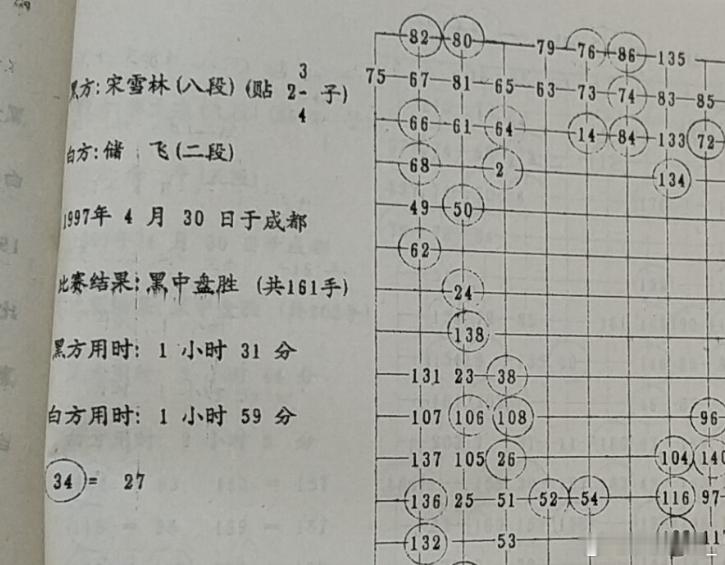 黑方:宋雪林(八段)(贴 2 3/4 子)
白方:储 飞(二段)
1997年 4 月 30 日于成都
比赛结果:黑中盘胜 (共161手)
黑方用时: 1 小时 31 分
白方用时: 1 小时 59 分
34 = 27
82 80 79 76 86 135
75 67 81 65 63 73 74 83 85
66 61 64 14 84 133 72
68 2 134
49 50
62
24
138
131 23 38
107 106 108 96
137 105 26 104 140
136 25 51 52 54 116 97
132 53